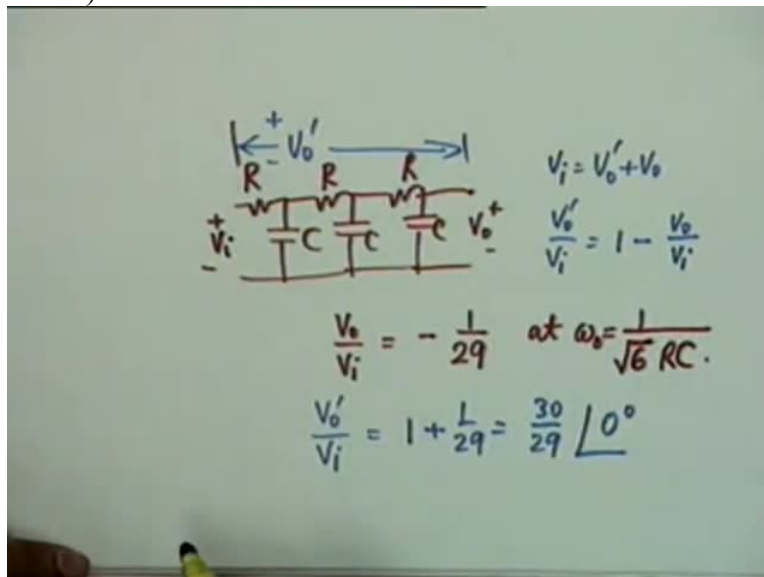 +
V₀'
-
R R R
+ Vᵢ - C C C V₀ + -
Vᵢ = V₀' + V₀
V₀'/Vᵢ = 1 - V₀/Vᵢ
V₀/Vᵢ = - 1/29 at ω₀ = 1/√6 RC.
V₀'/Vᵢ = 1 + 1/29 = 30/29 ∠0°